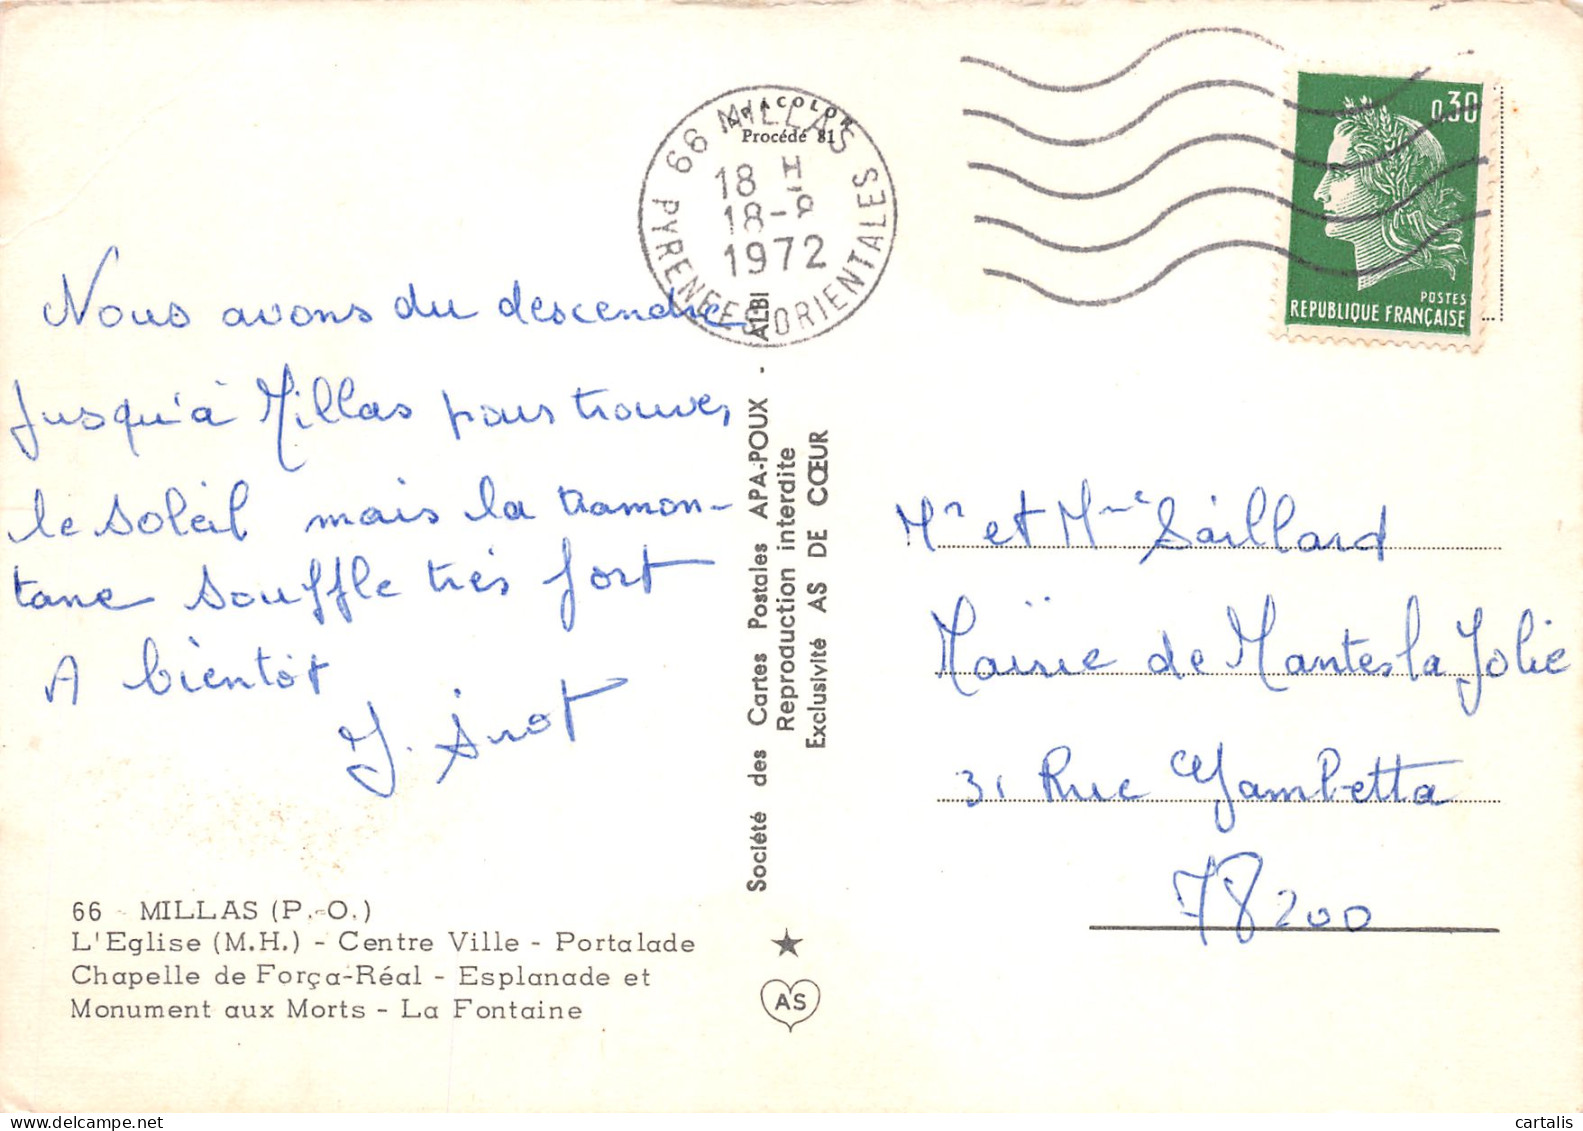 APACOLOR
Procédé 81
66 MILLAS
PYRENEES-ORIENTALES
18 H
18-9
1972
0,30
POSTES
REPUBLIQUE FRANÇAISE
Nous avons du descendre
jusqu'à Millas pour trouver
le soleil mais la tramon-
tane souffle très fort
A bientôt
Mr et Mme Saillard
Mairie de Mantes la Jolie
31 Rue Gambetta
78200
Société des Cartes Postales APA-POUX - ALBI
Reproduction interdite
Exclusivité AS DE CŒUR
66 - MILLAS (P.-O.)
L'Eglise (M.H.) - Centre Ville - Portalade
Chapelle de Força-Réal - Esplanade et
Monument aux Morts - La Fontaine
AS
www.delcampe.net
cartalis